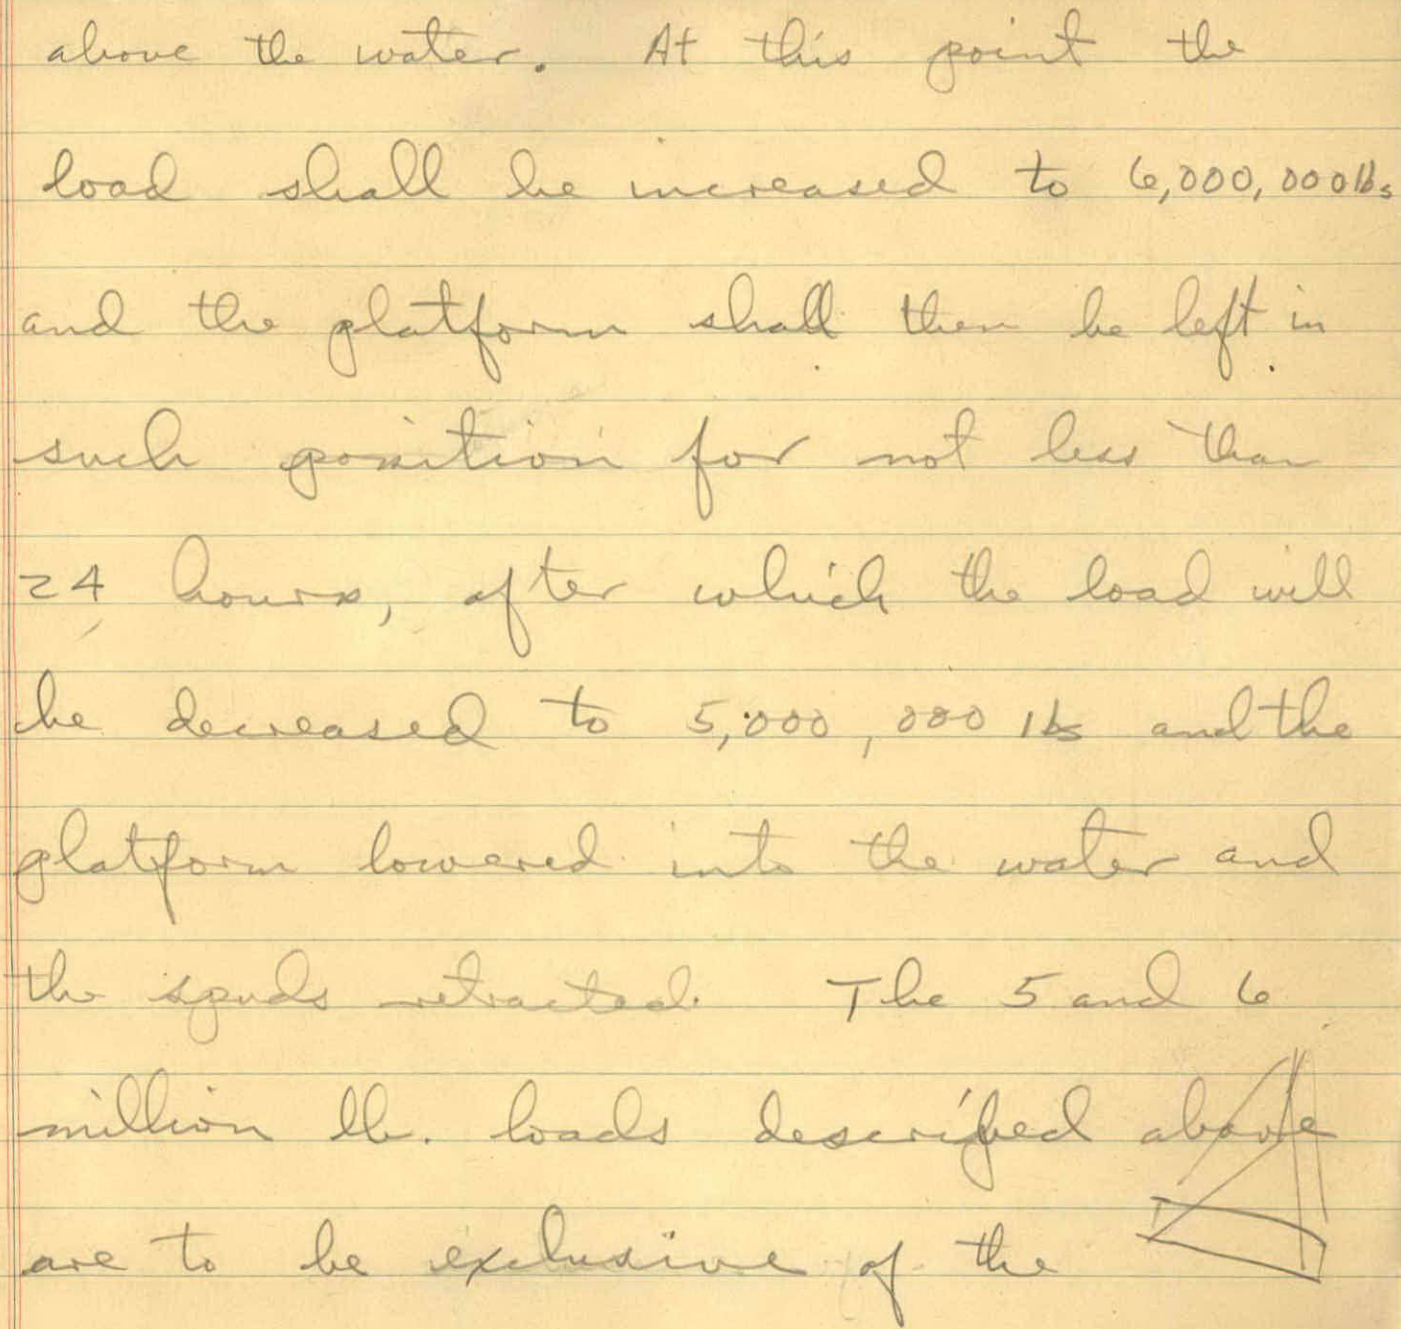 above the water. At this point the
load shall be increased to 6,000,000 lbs
and the platform shall then be left in
such position for not less than
24 hours, after which the load will
be decreased to 5,000,000 lbs and the
platform lowered into the water and
the spuds retracted. The 5 and 6
million lb. loads described above
are to be exclusive of the